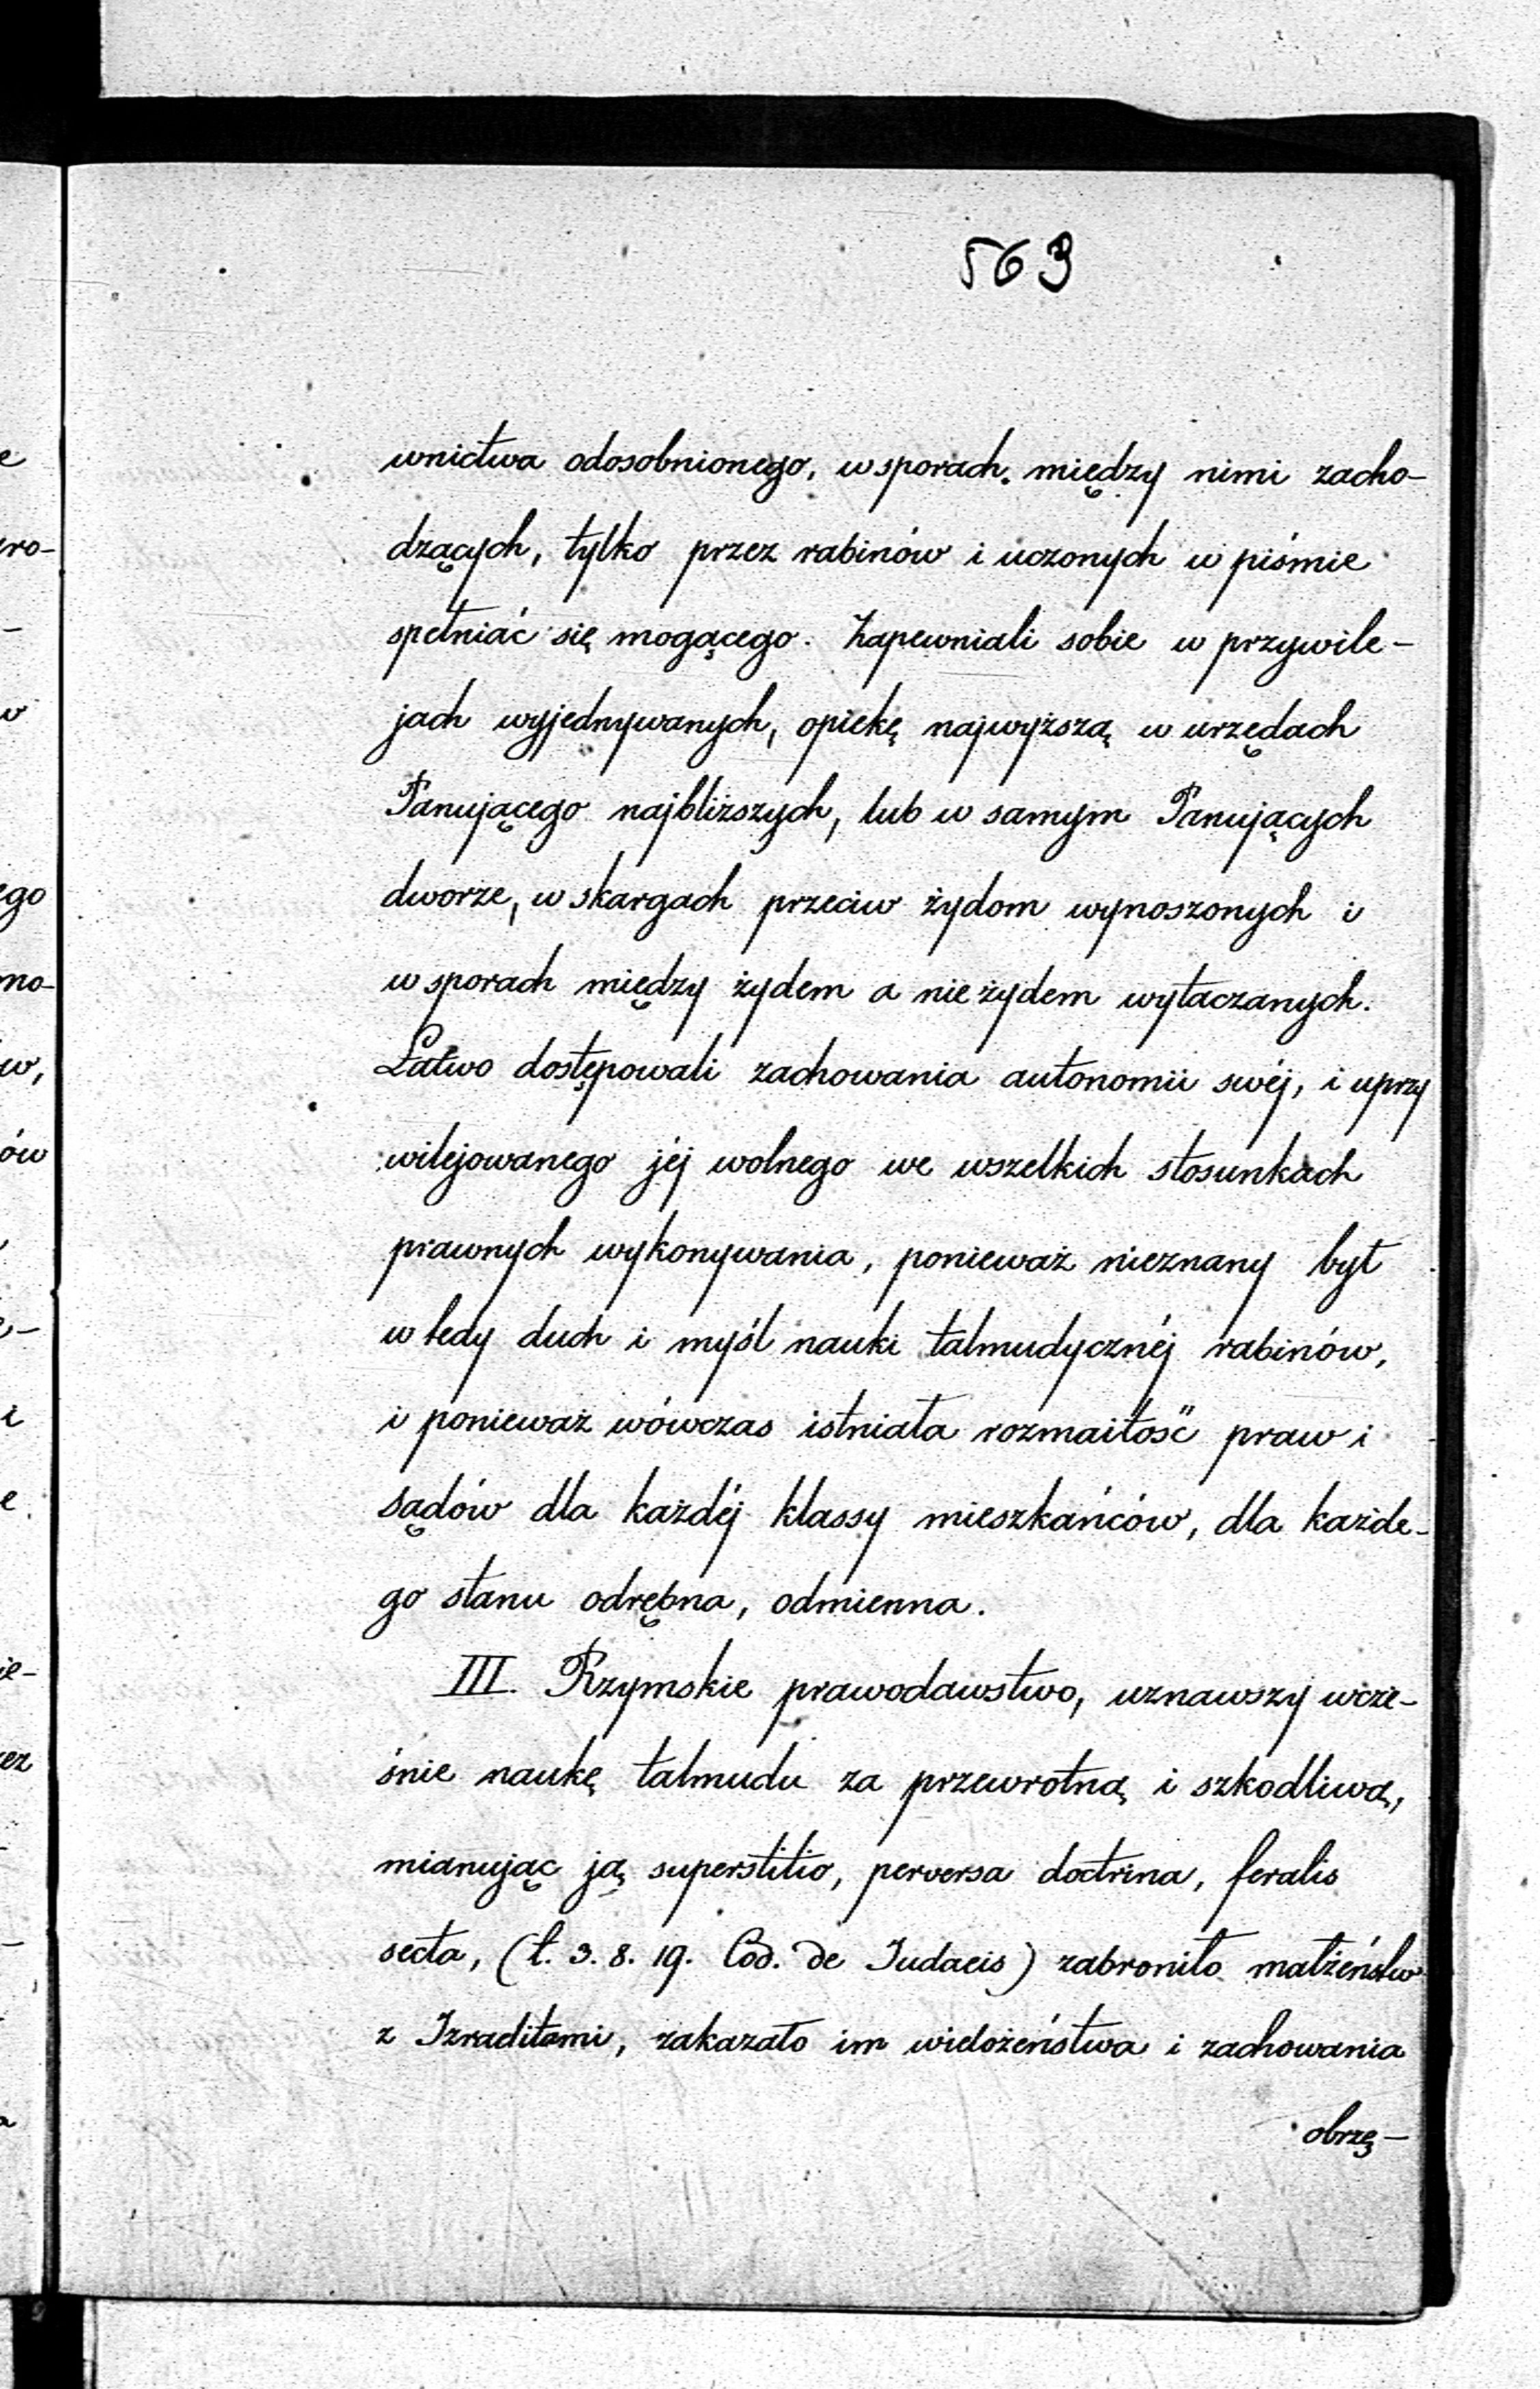 563
wnictwa odosobnionego, w sporach między nimi zacho-
dzących, tylko przez rabinów i uczonych w piśmie
spełniać się mogącego. Zapewniali sobie w przywile-
jach wyjednywanych, opiekę najwyższą w urzędach
Panującego najbliższych, lub w samym Panujących
dworze, w skargach przeciw żydom wynoszonych i
w sporach między żydem a nie żydem wytaczanych.
Łatwo dostępowali zachowania autonomii swéj, i uprzy
wilejowanego jéj wolnego we wszelkich stosunkach
prawnych wykonywania, ponieważ nieznany był
w tedy duch i myśl nauki talmudycznéj rabinów,
i ponieważ wówczas istniała rozmaitość praw i
sądów dla każdéj klassy mieszkańców, dla każde-
go stanu odrębna, odmienna.
III. Rzymskie prawodawstwo, uznawszy wcze-
śnie naukę talmudu za przewrotną i szkodliwą,
mianując ją superstitio, perversa doctrina, feralis
secta, (l. 3. 8. 19. Cod. de Judaeis) zabroniło małżeństw
z Izraelitami, zakazało im wielożeństwa i zachowania
obrzę-
e
ro-
-
w
ego
mo-
w,
ów
-
i
e
ie-
ez
-
-
a